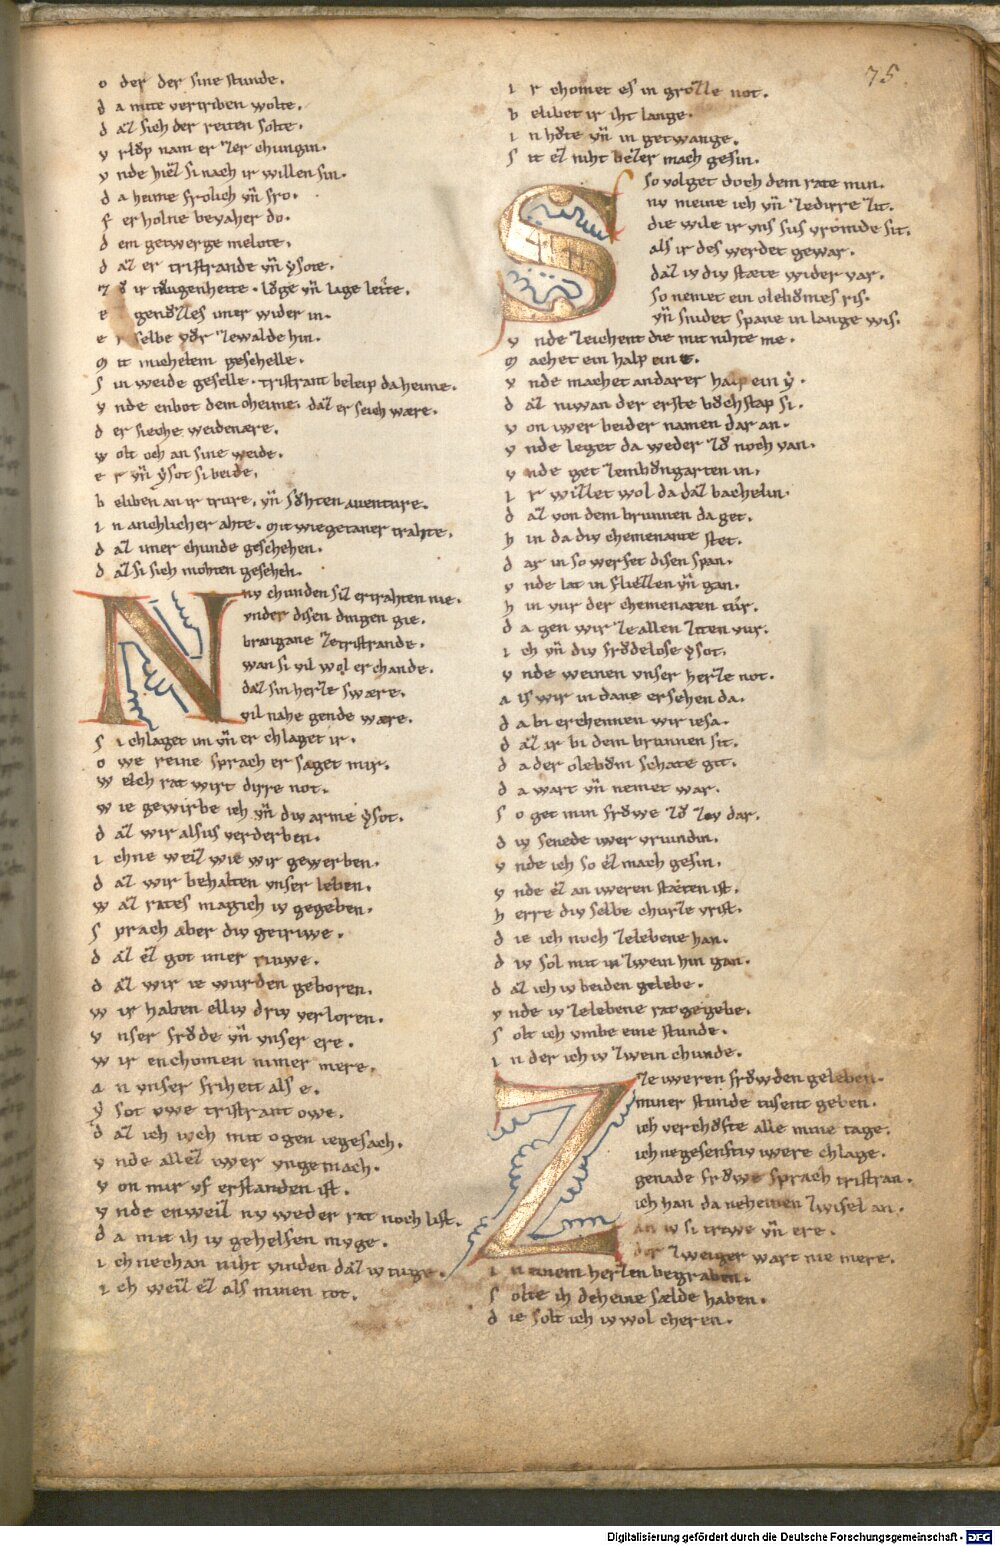 75
o der der sine stunde.
d a mite vertriben wolte.
d az sich der reiten solte.
v rlǒp nam er zer chungin.
v nde hiez si nach ir willen sin.
d a heime frolich vn̄ fro.
f er holne bevalher do.
d em getwerge melote.
d az er tristrande vn̄ ẏsote.
z ǒ ir tǒugenheite. lǒge vn̄ lage leite.
e genǒzles imer wider in.
e r selbe vǒr zewalde hin.
m it michelem geschelle.
s in weide geselle. tristrant beleip da heime.
v nde enbot dem oheime. daz er seich wære.
d er sieche weidenære.
w olt och an sine weide.
e r vn̄ ẏsot si beide.
b eliben an ir trure. vn̄ sǒhten aventure.
i n anchlicher ahte. mit wiegetaner trahte.
d az imer chunde geschehen.
d az si sich mohten gesehen.
N nv chunden sil ertrahten nie.
vnder disen dingen gie.
brangane zetristrande.
wan si vil wol erchande.
daz sin herze swære.
vil nahe gende wære.
s i chlaget im vn̄ er chlaget ir.
o we reine sprach er saget mir.
w elch rat wirt dirre not.
w ie gewirbe ich vn̄ div arme ẏsot.
d az wir alsus verderben.
i chne weiz wie wir gewerben.
d az wir behalten vnser leben.
w az rates mag ich iv gegeben.
s prach aber div getriwe.
d az ez got imer riuwe.
d az wir ie wurden geboren.
w ir haben elliv driv verloren.
v nser frǒde vn̄ vnser ere.
w ir enchomen nimer mere.
a n vnser friheit als e.
ẏ sot owe tristrant owe.
d az ich iveh mit ogen iegesach.
v nde allez iwer vngemach.
v on mir vf erstanden ist.
v nde enweiz nv weder rat noch list.
d a mit ih iv gehelfen mvge.
i ch nechan niht vinden daz iv tuge.
i ch weiz ez als minen tot.
i r chomet es in grozze not.
b elibet ir iht lange.
i n hǒte vn̄ in getwange.
s it ez niht bezer mach gesin.
S so volget doch dem rate min.
nv meine ich vn̄ zedirre zit.
die wile ir vns sus vromde sit.
als ir des werdet gewar.
daz iv div stæte wider var.
so nemet ein olebǒmes ris.
vn̄ snidet spane in lange wis.
v nde zeichent die mit nihte me.
m achet ein halp ein t.
v nde machet andarer halp ein ẏ.
d az niwan der erste bǒchstap si.
v on iwer beider namen dar an.
v nde leget da weder zǒ noch van.
v nde get zembǒngarten in.
i r wizzet wol da daz bachelin.
d az von dem brunnen da get.
h in da div chemenante stet.
d ar in so werfet disen span.
v nde lat in fliezzen vn̄ gan.
h in vur der chemenaten tür.
d a gen wir zeallen ziten vur.
i ch vn̄ div frǒdelose ẏsot.
v nde weinen vnser herze not.
a ls wir in dane ersehen da.
d a bi erchennen wir iesa.
d az ir bi dem brunnen sit.
d a der olebǒm schate git.
d a wart vn̄ nemet war.
s o get min frǒwe zǒ zev dar.
d iv senede iwer vriundin.
v nde ich so ez mach gesin.
v nde ez an iweren stæten ist.
h erre div selbe churze vrist.
d ie ich noch zelebene han.
d iv sol mit iv zwein hin gan.
d az ich iv beiden gelebe.
v nde iv zelebene rat gegebe.
s olt ich vmbe eine stunde.
i n der ich iv zwein chunde.
Z ze iweren frǒwden geleben.
miner stunde tusent geben.
ich verchǒfte alle mine tage.
ich negesenftiv iwere chlage.
genade frǒwe sprach tristran.
ich han da neheinen zwifel an.
an iv si triwe vn̄ ere.
der zweiger wart nie mere.
i n einem herzen begraben.
s olte ih deheine sælde haben.
d ie solt ich iv wol cheren.
Digitalisierung gefördert durch die Deutsche Forschungsgemeinschaft - DFG